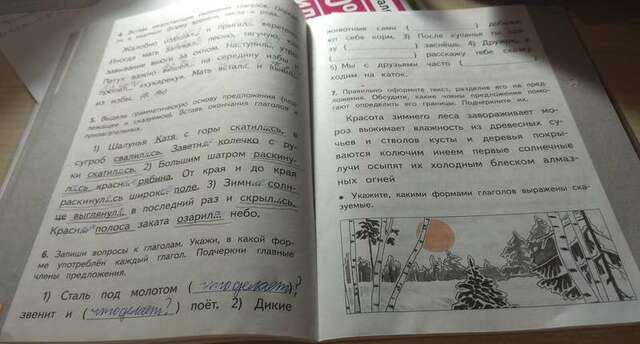 4. Вставь
Жалобно и прыгал веретено
Иногда мать лесню, тягучую, как
завывание вьюги за окном. Наступил утро.
Петух важно на середину избы и
кукарекуя. Мать встал и
из избы.
5. Выдели грамматическую основу предложения (под-
лежащее и сказуемое). Вставь окончания глаголов и
прилагательных.
1) Шалунья Катя с горы скатилась в
сугроб свалилась. Заветно колечко с ру-
ки скатилось. 2) Большим шатром раскину-
лась красна рябина. От края и до края
раскинулось широко поле. 3) Зимн солн-
це выглянул в последний раз и скрылось.
Красн полоса заката озарил небо.
6. Запиши вопросы к глаголам. Укажи, в какой фор-
ме употреблён каждый глагол. Подчеркни главные
члены предложения.
1) Сталь под молотом (что делает)?
звенит и (что делает?) поёт. 2) Дикие
животные сами ( ) добыва-
ют себе корм. 3) После купанья ты сра-
зу ( ) заснёшь. 4) Друзья, я
( ) расскажу тебе сказку.
5) Мы с друзьями часто ( )
ходим на каток.
7. Правильно оформите текст, разделив его на пред-
ложения. Обсудите, какие члены предложения помо-
гают определить его границы. Подчеркните их.
Красота зимнего леса завораживает мо-
роз выжимает влажность из древесных су-
чьев и стволов кусты и деревья покры-
ваются колючим инеем первые солнечные
лучи осыпят их холодным блеском алмаз-
ных огней
• Укажите, какими формами глаголов выражены ска-
зуемые.